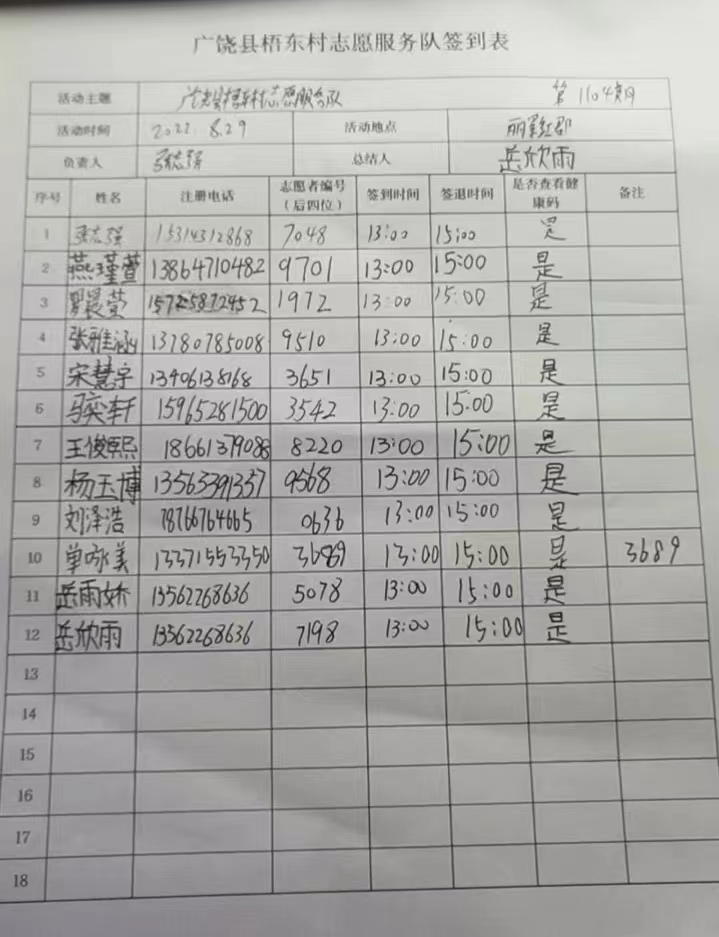 广饶县梧东村志愿服务队签到表
活动主题 广饶县梧东村志愿服务队 第1104期
活动时间 2022.8.29 活动地点 丽景虹郡
负责人 张志强 总结人 岳欣雨
序号 姓名 注册电话 志愿者编号（后四位） 签到时间 签退时间 是否查看健康码 备注
1 张志强 15314312868 7048 13:00 15:00 是
2 燕瑾萱 13864710482 9701 13:00 15:00 是
3 晨萤 1972 13:00 15:00 是
4 张雅涵 13780785008 9510 13:00 15:00 是
5 宋慧宇 13406138168 3651 13:00 15:00 是
6 骆奕轩 15965281500 3542 13:00 15:00 是
7 王俊熙 18661379088 8220 13:00 15:00 是
8 杨玉博 13563391337 9568 13:00 15:00 是
9 刘泽浩 18766764665 0636 13:00 15:00 是
10 单咏美 13371553350 3689 13:00 15:00 是 3689
11 岳雨娇 13562268636 5078 13:00 15:00 是
12 岳欣雨 13562268636 7198 13:00 15:00 是
13
14
15
16
17
18